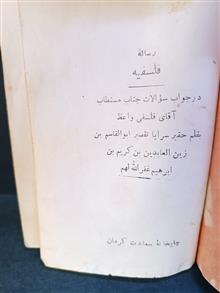 رسالهٔ
فلسفیه
در جواب سؤالات جناب مستطاب
آقای فلسفی واعظ
بقلم حقیر سراپا تقصیر ابوالقاسم بن
زین العابدین بن کریم بن
ابراهیم غفر الله لهم
چاپخانهٔ سعادت کرمان